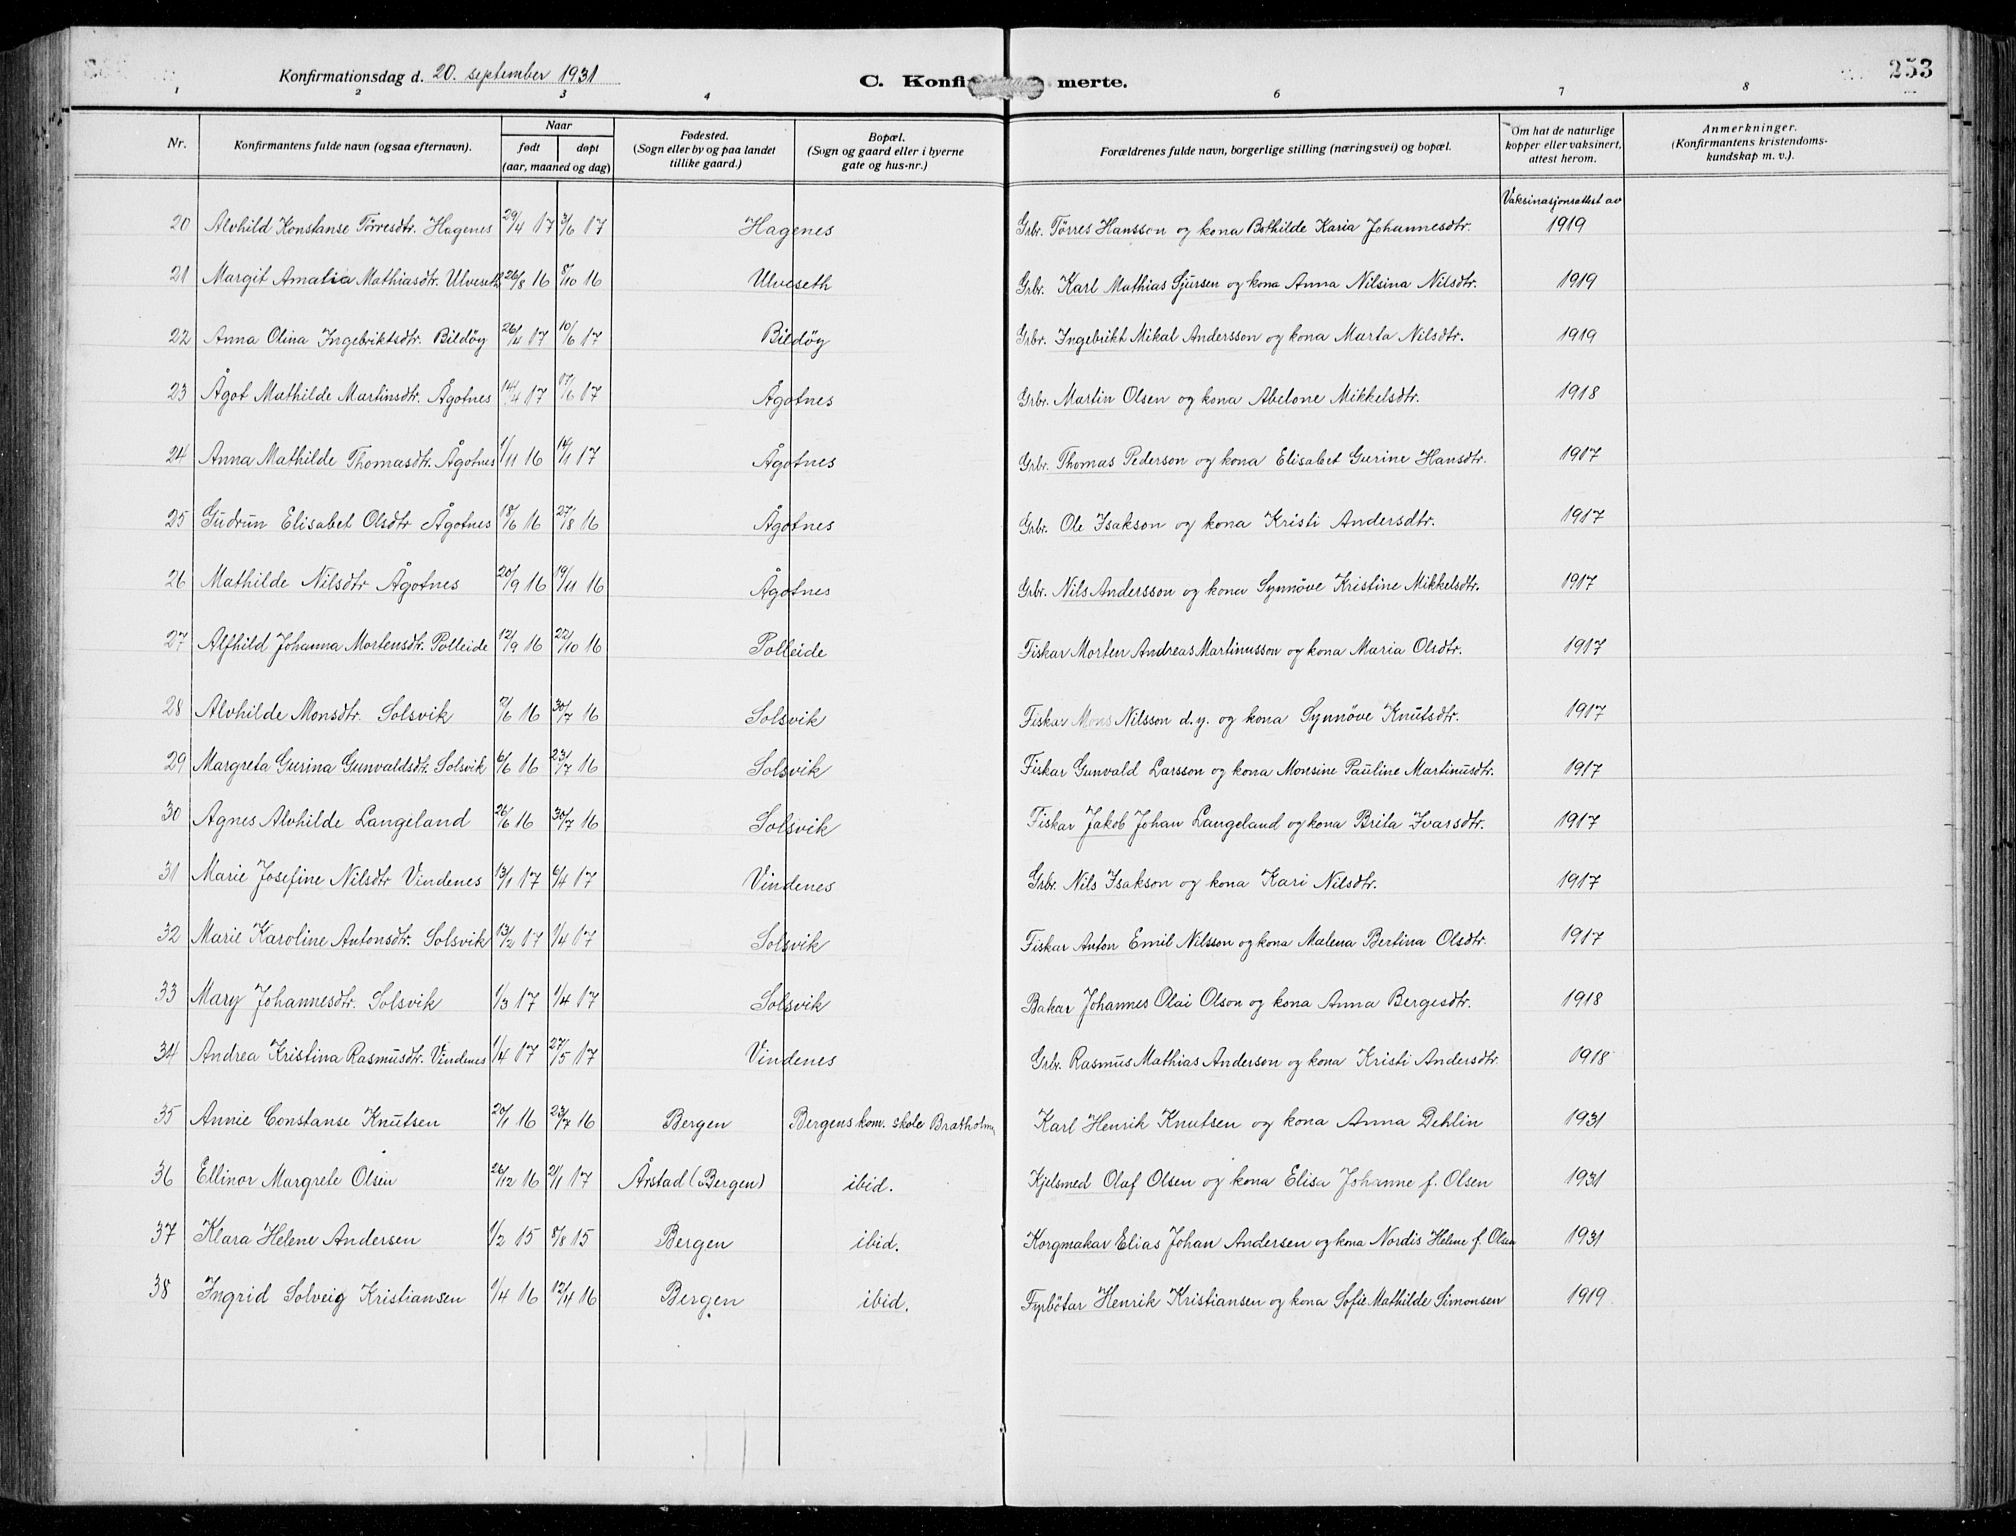 Konfirmationsdag d. 20. september 1931 C. Konfi merte. 253
1 2 3 4 6 7 8
Nr. Konfirmantens fulde navn (ogsaa efternavn). Naar født døpt (aar, maaned og dag) Fødested. (Sogn eller by og paa landet tillike gaard.) Bopæl. (Sogn og gaard eller i byerne gate og hus-nr.) Forældrenes fulde navn, borgerlige stilling (næringsvei) og bopæl. Om hat de naturlige kopper eller vaksinert, attest herom. Anmerkninger. (Konfirmantens kristendoms-kundskap m. v.).
Vaksinasjonsattest av
20 Alvhild Konstanse Tørresdtr. Hagenes 29/4 17 3/6 17 Hagenes Grbr. Tørres Hansson og kona Bothilde Karia Johannesdtr. 1919
21 Margit Amalia Mathiasdtr. Ulveseth 26/8 16 8/10 16 Ulveseth Grbr. Karl Mathias Sjursen og kona Anna Nilsina Nilsdtr. 1919
22 Anna Olina Ingebriktsdtr. Bildøy 26/4 17 10/6 17 Bildøy Grbr. Ingebrikt Mikal Andersson og kona Marta Nilsdtr. 1919
23 Ågot Mathilde Martinsdtr. Ågotnes 14/4 17 17/6 17 Ågotnes Grbr. Martin Olsen og kona Abelone Mikkelsdtr. 1918
24 Anna Mathilde Thomasdtr. Ågotnes 1/11 16 14/1 17 Ågotnes Grbr. Thomas Pederson og kona Elisabet Gurine Hansdtr. 1917
25 Gudrun Elisabet Olsdtr Ågotnes 18/6 16 27/8 16 Ågotnes Grbr. Ole Isakson og kona Kristi Andersdtr. 1917
26 Mathilde Nilsdtr Ågotnes 20/9 16 19/11 16 Ågotnes Grbr. Nils Andersson og kona Synnøve Kristine Mikkelsdtr. 1917
27 Alfhild Johanna Mortensdtr. Polleide 12/9 16 22/10 16 Polleide Fiskar Morten Andreas Martinusson og kona Maria Olsdtr. 1917
28 Alvhilde Monsdtr. Solsvik 7/6 16 30/7 16 Solsvik Fiskar Mons Nilsson d.y. og kona Synnøve Knutsdtr. 1917
29 Margreta Gurina Gunvaldsdtr. Solsvik 6/6 16 23/7 16 Solsvik Fiskar Gunvald Larsson og kona Monsine Pauline Martinusdtr. 1917
30 Agnes Alvhilde Langeland 26/6 16 30/7 16 Solsvik Fiskar Jakob Johan Langeland og kona Brita Ivarsdtr. 1917
31 Marie Josefine Nilsdtr Vindenes 13/1 17 6/4 17 Vindenes Grbr. Nils Isakson og kona Kari Nilsdtr. 1917
32 Marie Karoline Antonsdtr. Solsvik 13/2 17 1/4 17 Solsvik Fiskar Anton Emil Nilsson og kona Malena Bertina Olsdtr. 1917
33 Mary Johannesdtr. Solsvik 1/3 17 1/4 17 Solsvik Bakar Johannes Olai Olson og kona Anna Bergesdtr. 1918
34 Andrea Kristina Rasmusdtr. Vindenes 1/4 17 27/5 17 Vindenes Grbr. Rasmus Mathias Anderson og kona Kristi Andersdtr 1918
35 Annie Constanse Knutsen 20/1 16 23/7 16 Bergen Bergens kom. skole Bratholmen Karl Henrik Knutsen og kona Anna Dehlin 1931
36 Ellinor Margrete Olsen 26/12 16 21/1 17 Årstad (Bergen) ibid. Kjelsmed Olaf Olsen og kona Elisa Johanne f. Olsen 1931
37 Klara Helene Andersen 1/2 15 8/8 15 Bergen ibid. Korgmakar Elias Johan Andersen og kona Nordis Helene f. Olsen 1931
38 Ingrid Solveig Kristiansen 1/4 16 12/4 16 Bergen ibid. Fyrbøtar Henrik Kristiansen og kona Sofie Mathilde Simonsen 1919